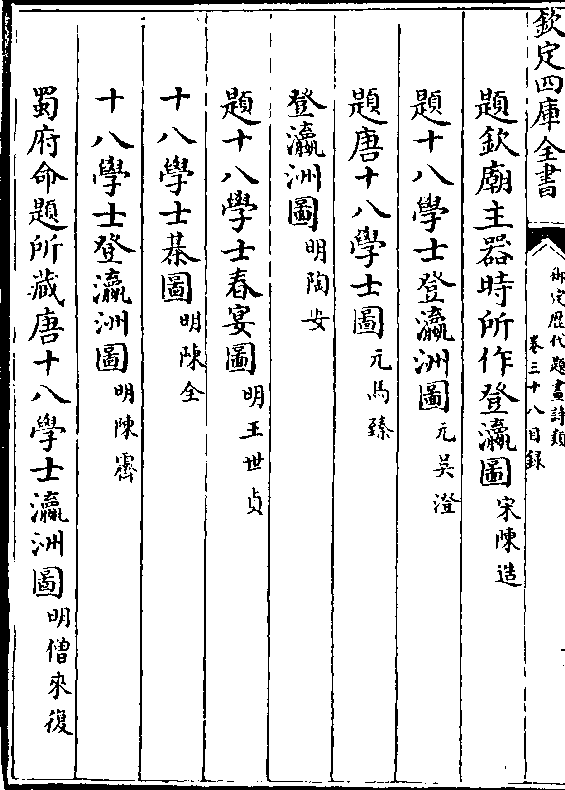 欽定四庫全書
御定歷代題畫詩類
卷三十八目録
題欽廟主器時所作登瀛圖 宋陳造
題十八學士登瀛洲圖 元吳澄
題唐十八學士圖 元馬臻
登瀛洲圖 明陶安
題十八學士春宴圖 明王世貞
十八學士棊圖 明陳全
十八學士登瀛洲圖 明陳霽
蜀府命題所藏唐十八學士瀛洲圖 明僧來復